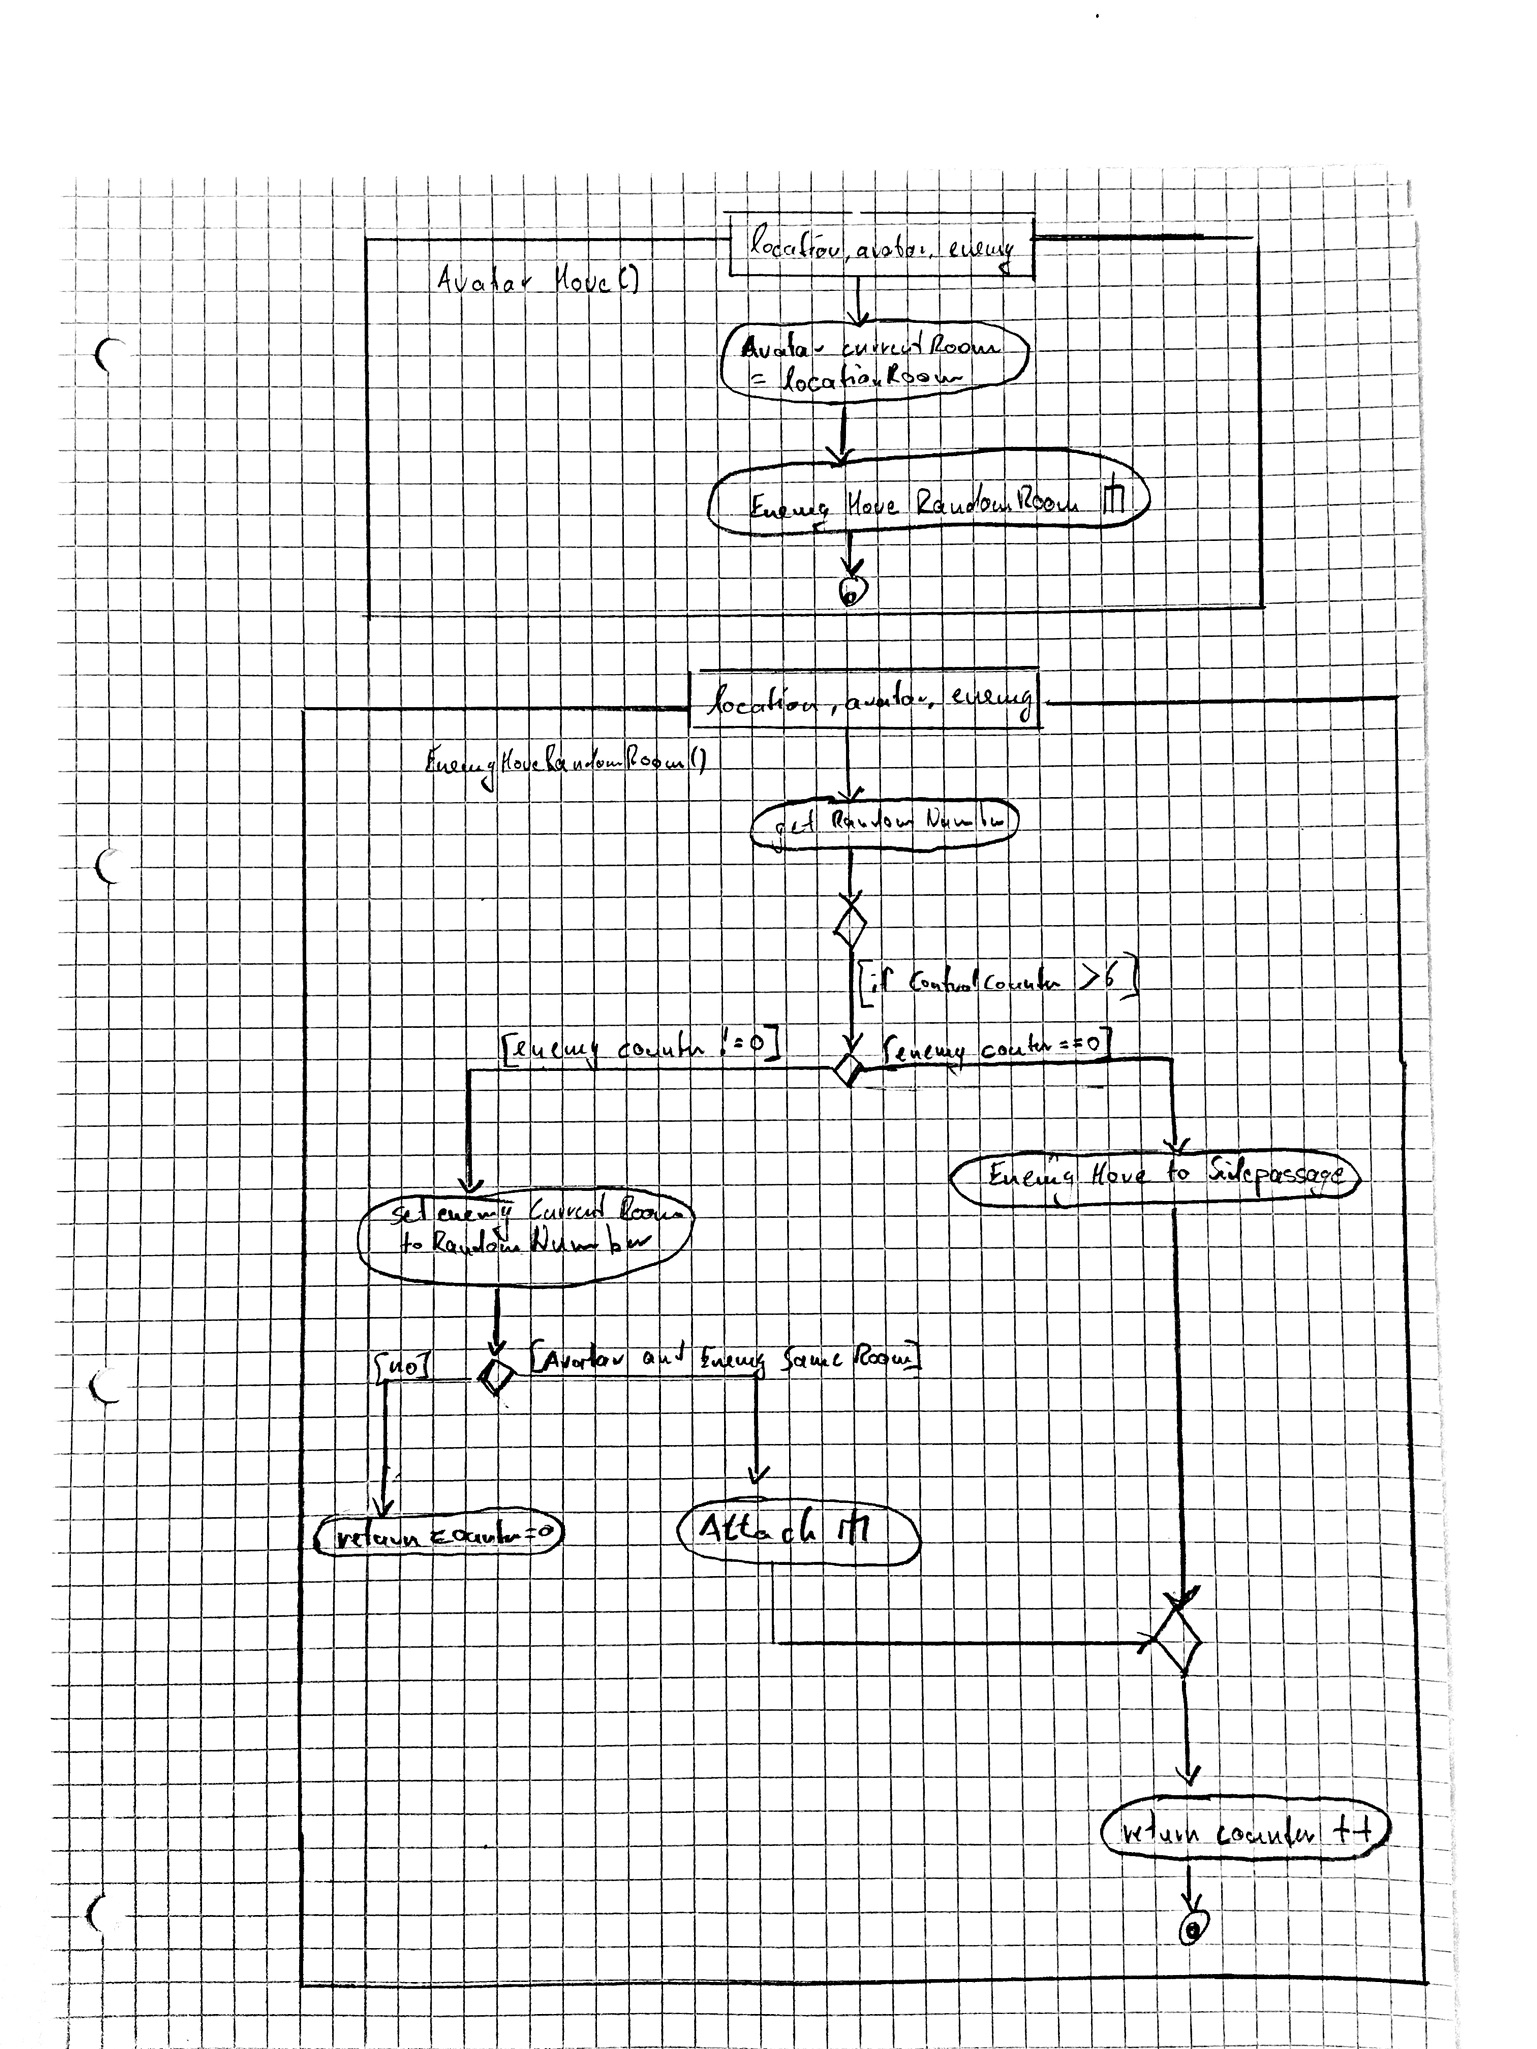 location, avatar, enemy
Avatar Move()
Avatar currentRoom
= locationRoom
Enemy Move RandomRoom
location, avatar, enemy
EnemyMoveRandomRoom()
get Random Number
[if Controlcounter >6]
[enemy counter !=0]
[enemy couter==0]
Enemy Move to Sidepassage
set enemy Current Room
to Random Number
[no]
[Avatar and Enemy Same Room]
return counter=0
Attack
return counter ++